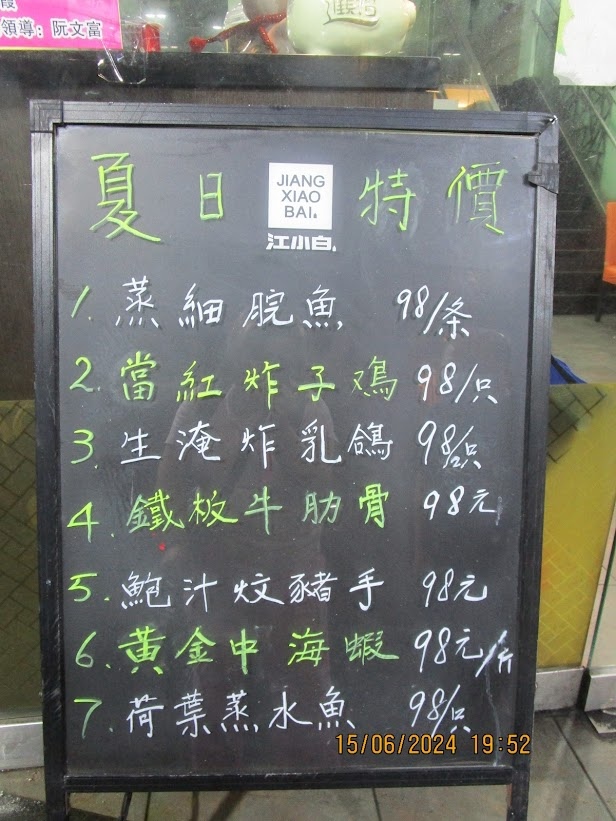 領導：阮文富
夏日 JIANG XIAO BAI. 特價
江小白.
1. 蒸細脘魚 98/条
2. 當紅炸子鳮 98/只
3. 生淹炸乳鴿 98/只
4. 鐵板牛肋骨 98元
5. 鮑汁炆豬手 98元
6. 黃金中海蝦 98元/斤
7. 荷葉蒸水魚 98/只
15/06/2024 19:52